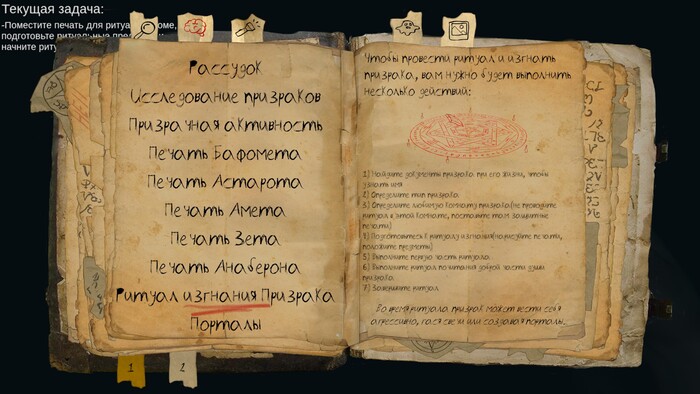 Текущая задача:
-Поместите печать для ритуа
подготовьте ритуальные пред
начните риту
Рассудок
Исследование призраков
Призрачная активность
Печать Бафомета
Печать Астарота
Печать Амета
Печать Зета
Печать Анаберона
Ритуал изгнания Призрака
Порталы
1
2
Чтобы провести ритуал и изгнать
призрака, вам нужно будет выполнить
несколько действий:
1) Найдите документы призрака при его жизни, чтобы
узнать имя
2) Определите тип призрака.
3) Определите любимую комнату призрака(не проводите
ритуал в этой комнате, поставьте там защитные
печати)
4) Подготовьтесь к ритуалу изгнания(нарисуйте печати,
положите предметы)
5) Выполните первую часть ритуала.
6) Выполните ритуал почитания доброй части души
призрака.
7) Завершите ритуал
Во время ритуала, призрак может вести себя
агрессивно, гася свечи или создавая порталы.